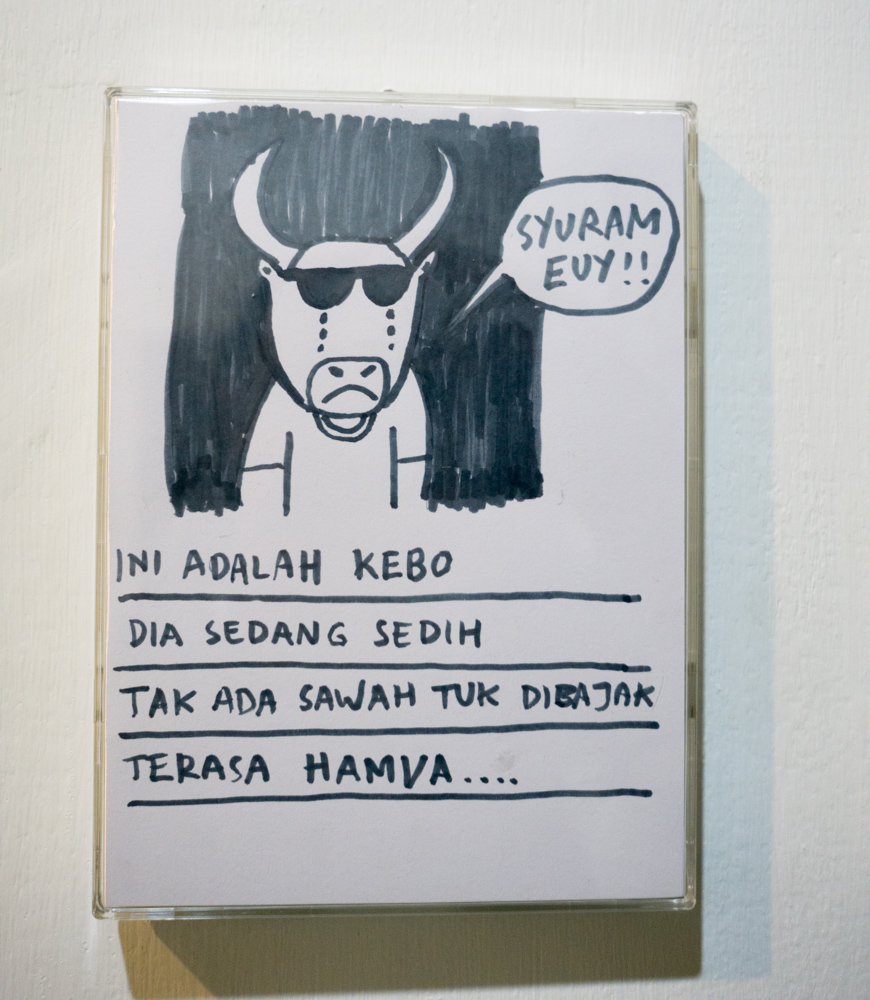 SYURAM
EUY!!
INI ADALAH KEBO
DIA SEDANG SEDIH
TAK ADA SAWAH TUK DIBAJAK
TERASA HAMVA....